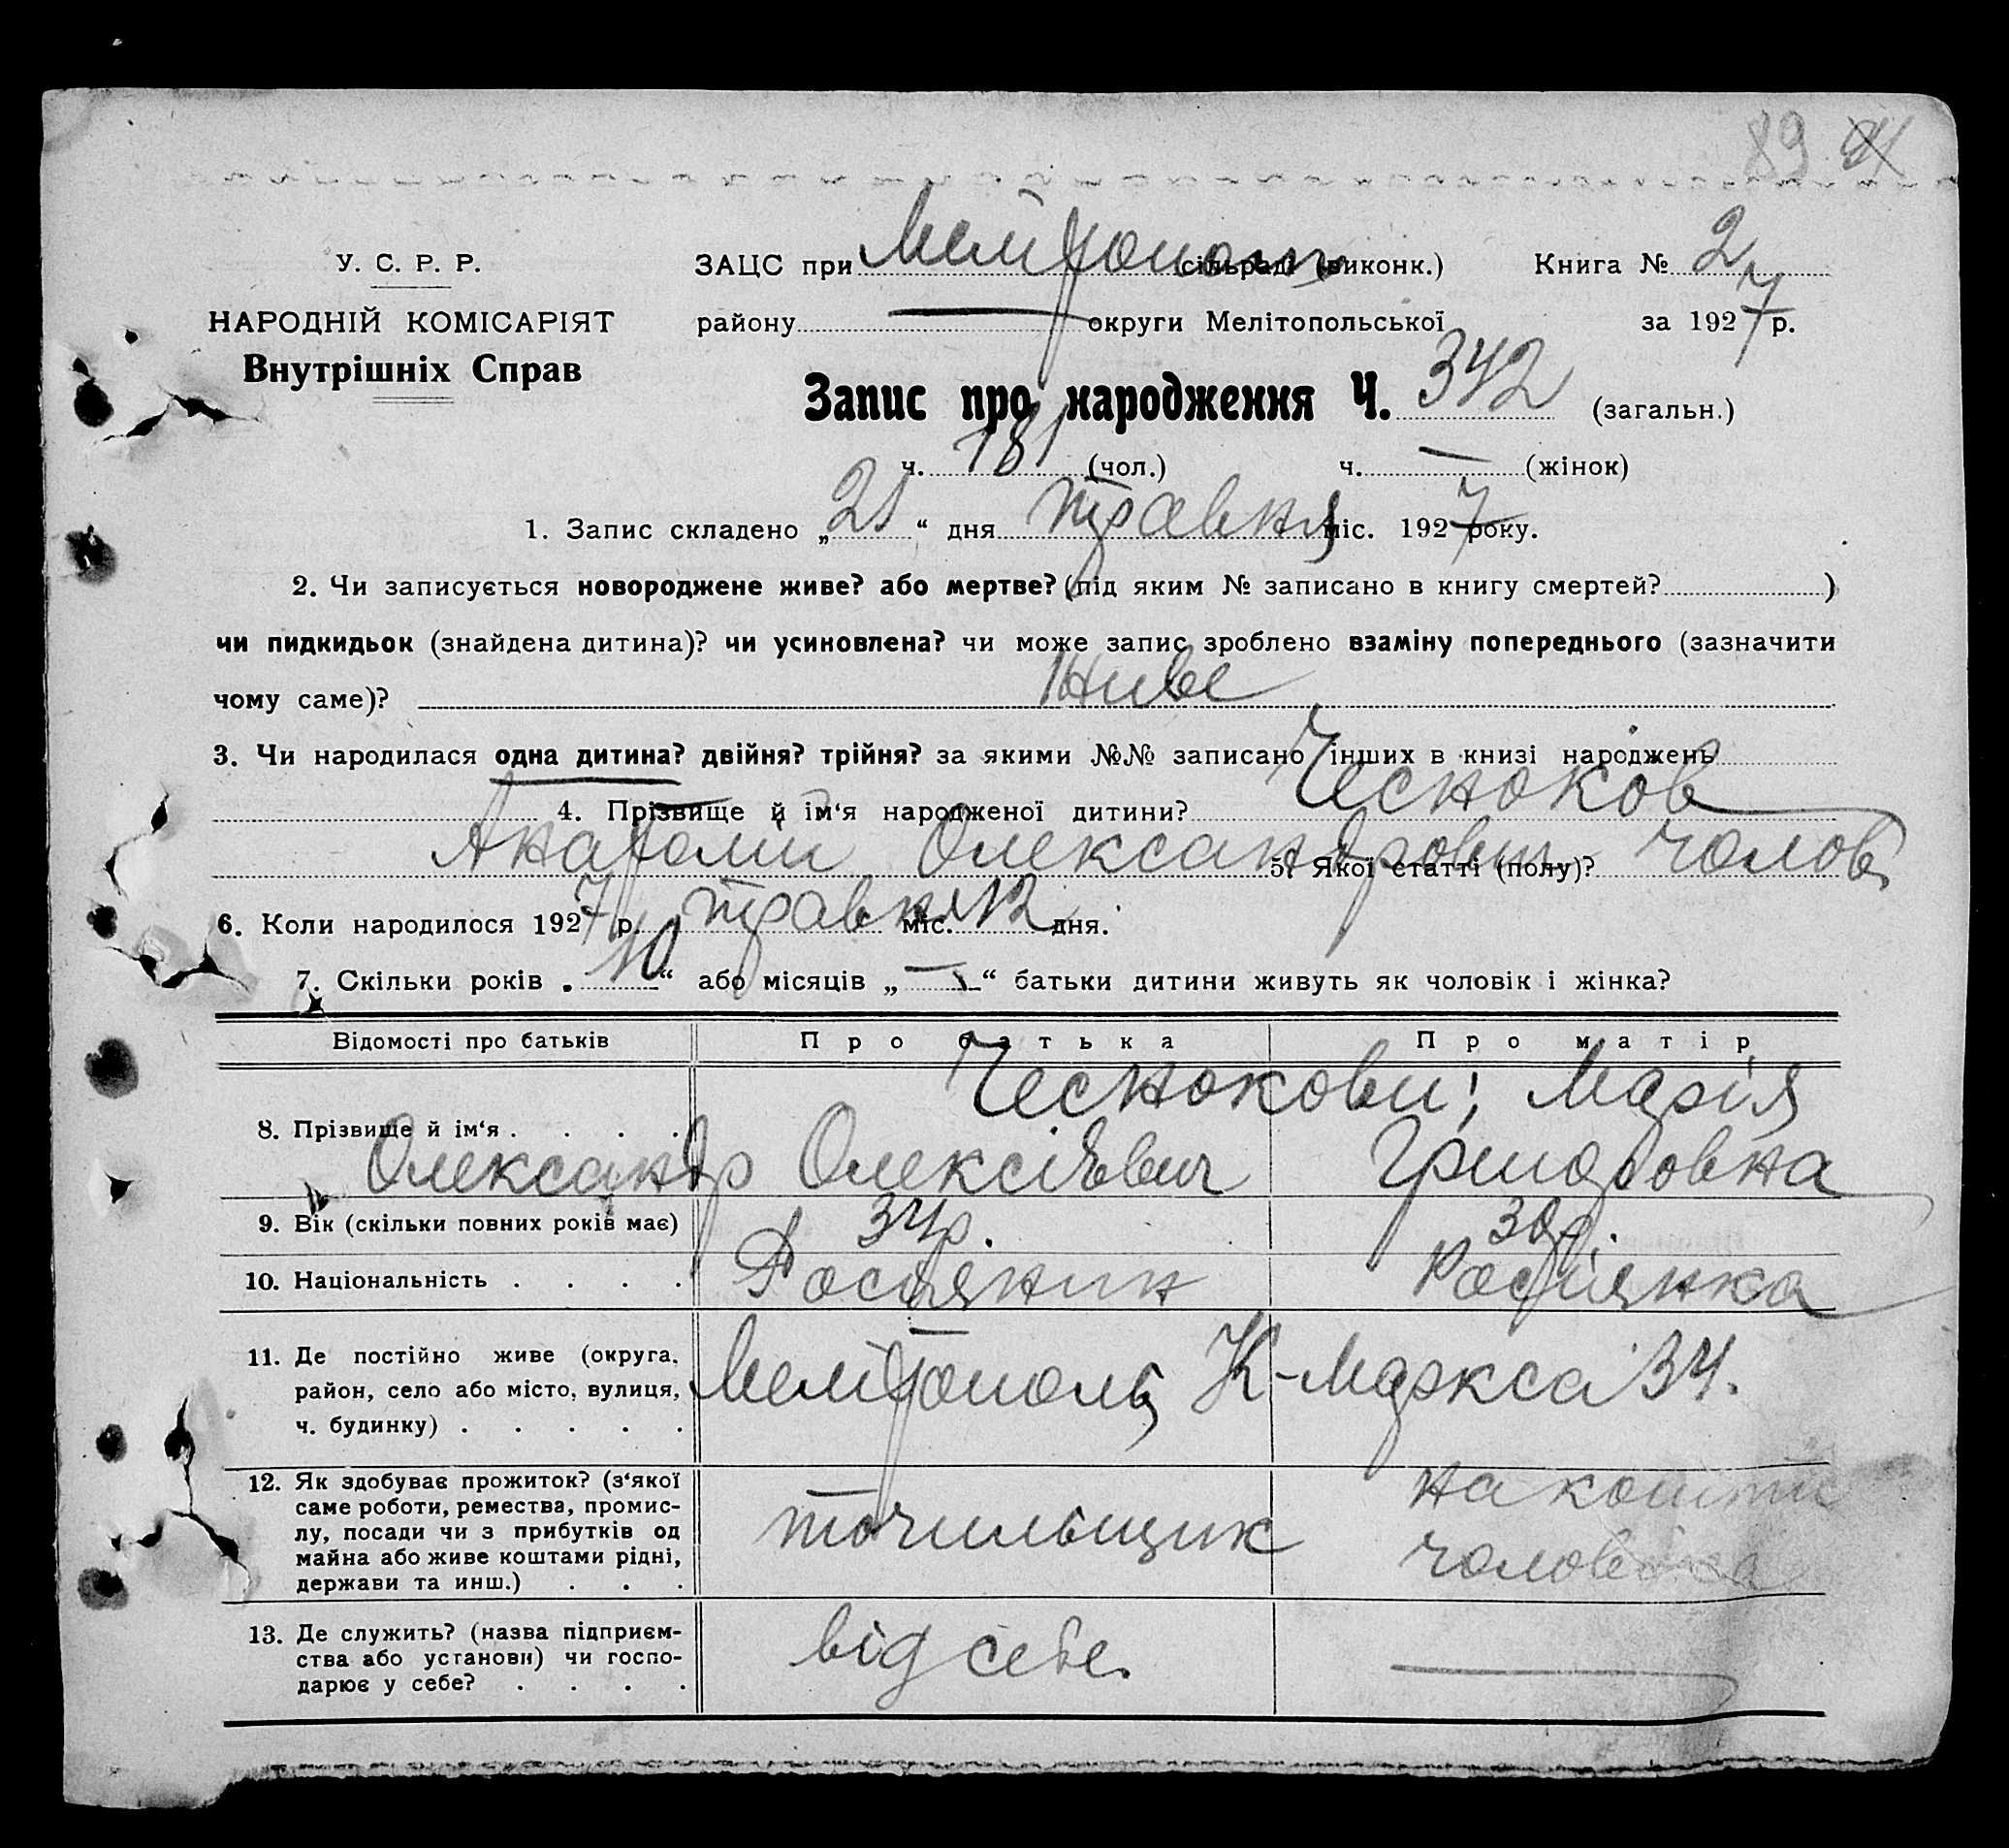 89
У. С. Р. Р.
НАРОДНІЙ КОМІСАРІЯТ
Внутрішніх Справ
ЗАЦС при Мелітополь сільраді (виконк.) Книга № 2
району — округи Мелітопольської за 1927 р.
Запис про народження Ч. 342 (загальн.)
ч. 181 (чол.) ч. — (жінок)
1. Запис складено „21“ дня травня міс. 1927 року.
2. Чи записується новороджене живе? або мертве? (під яким № записано в книгу смертей? )
чи пидкидьок (знайдена дитина)? чи усиновлена? чи може запис зроблено взаміну попереднього (зазначити
чому саме)? Живе
3. Чи народилася одна дитина? двійня? трійня? за якими №№ записано інших в книзі народжень
4. Прізвище й ім‘я народженої дитини? Чесноков
Анатолій Олександрович 5. Якої статті (полу)? чолов.
6. Коли народилося 1927 р. травня міс. 12 дня.
7. Скільки років „10“ або місяців „—“ батьки дитини живуть як чоловік і жінка?
Відомості про батьків Про батька Про матір
Чеснокови; Марія
8. Прізвище й ім‘я . . . . Олександр Олексієвич Григоровна
9. Вік (скільки повних років має) 34р. 30р.
10. Національність . . . . Росіянин Росіянка
11. Де постійно живе (округа,
район, село або місто, вулиця, Мелітополь, К-Маркса 34.
ч. будинку) . . . . .
12. Як здобуває прожиток? (з‘якої
саме роботи, ремества, промис-
лу, посади чи з прибутків од
майна або живе коштами рідні,
держави та инш.) . . .
точильщик на кошти
чоловіка
13. Де служить? (назва підприєм-
ства або установи) чи госпо-
дарює у себе? . . . .
від себе. —